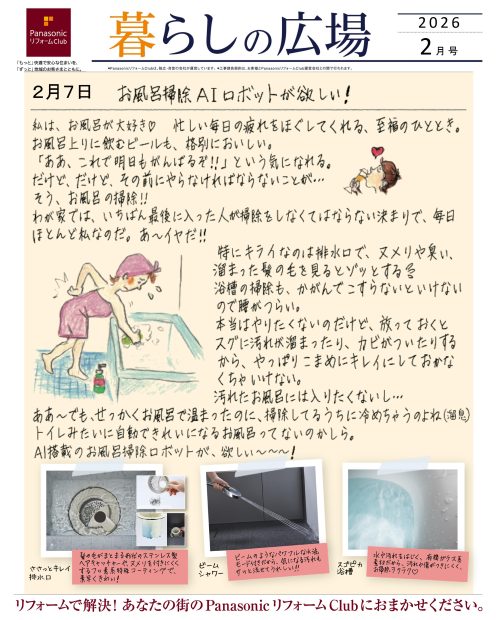 Panasonic
リフォームClub
「もっと」快適で安心な住まいを、
「ずっと」地域のお客さまとともに。
暮らしの広場
2026
2月号
2月7日 お風呂掃除AIロボットが欲しい!
私は、お風呂が大好き♡ 忙しい毎日の疲れをほぐしてくれる、至福のひととき。
お風呂上りに飲むビールも、格別においしい。
「ああ、これで明日もがんばるぞ!!」という気になれる。
だけど、だけど、その前にやらなければならないことが…
そう、お風呂の掃除!!
わが家では、いちばん最後に入った人が掃除をしなくてはならない決まりで、毎日
ほとんど私なのだ。あ〜イヤだ!!
特にキライなのは排水口で、ヌメリや臭い、
溜まった髪の毛を見るとゾッとする
浴槽の掃除も、かがんでこすらないといけない
ので腰がつらい。
本当はやりたくないのだけど、放っておくと
スグに汚れが溜まったり、カビがついたりする
から、やっぱりこまめにキレイにしておかな
くちゃいけない。
汚れたお風呂には入りたくないし…
ああ〜でも、せっかくお風呂で温まったのに、掃除してるうちに冷めちゃうのよね(溜息)
トイレみたいに自動できれいになるお風呂ってないのかしら。
AI搭載のお風呂掃除ロボットが、欲しい〜〜〜!
ささっとキレイ
排水口
髪の毛がまとまる形状のステンレス製
ヘアキャッチャーで、ヌメリを付きにくく
コーティングで、
ビーム
シャワー
ビームのようなパワフルな水流
モード付きだから、気になる汚れも
スゴピカ
浴槽
水や汚れをはじく、有機ガラス系
素材だから、汚れや傷がつきにくく、
お掃除ラクラク♡
リフォームで解決! あなたの街のPanasonicリフォームClubにおまかせください。